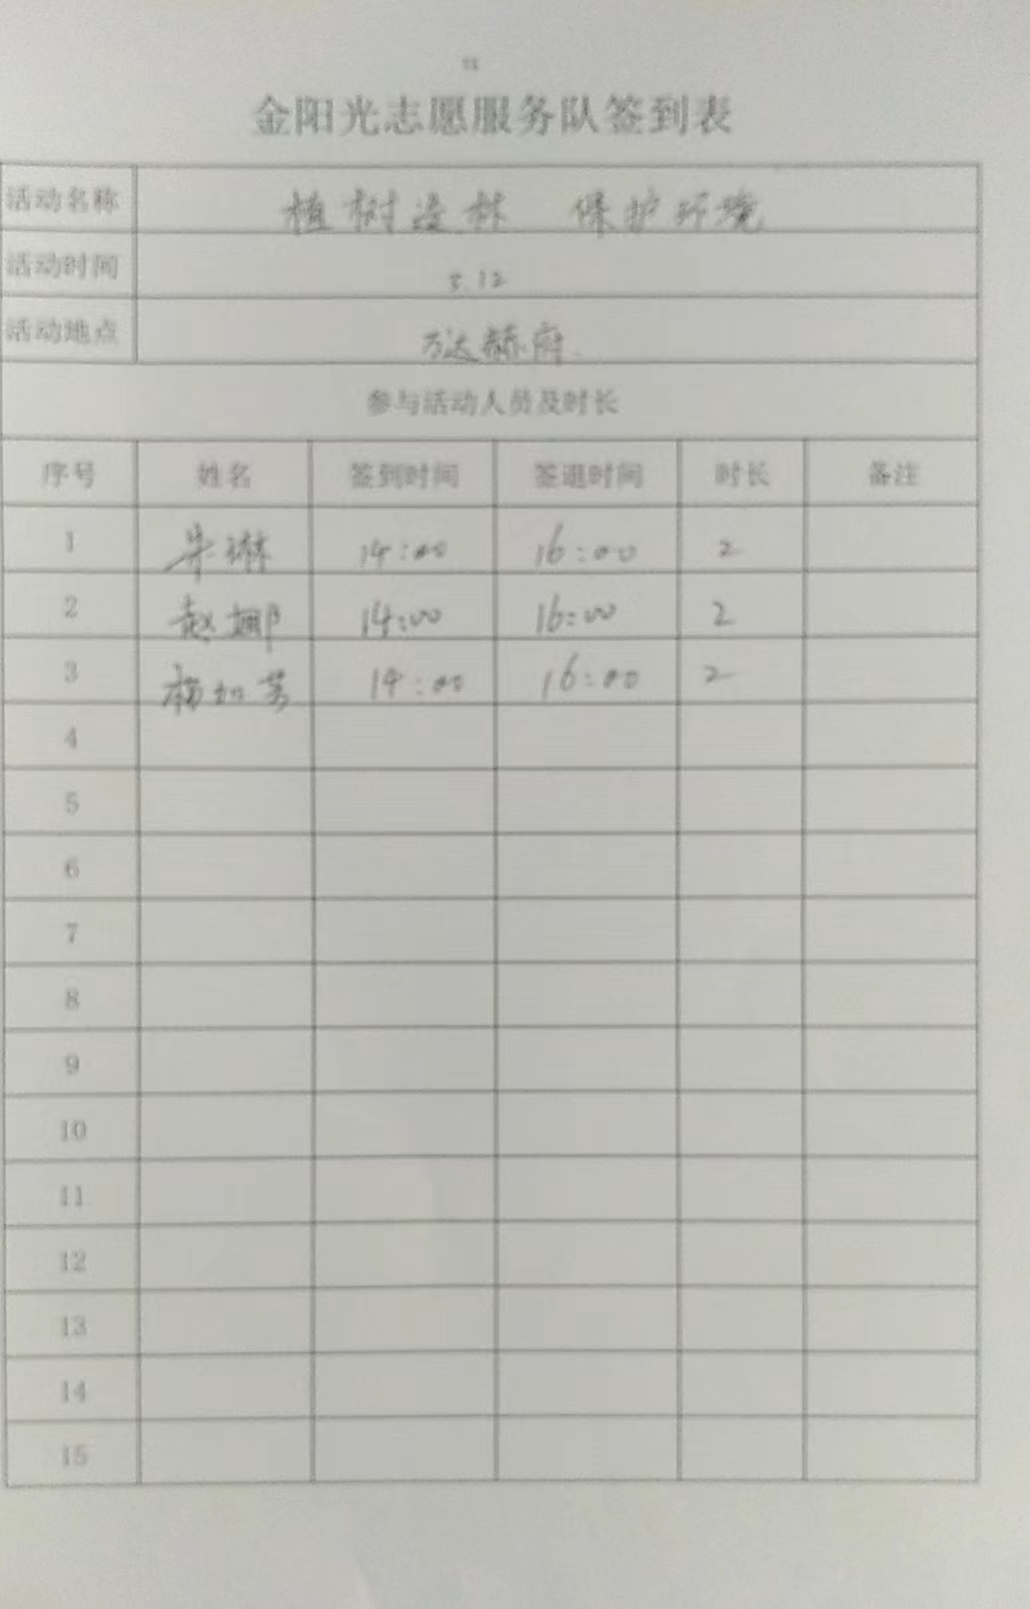 金阳光志愿服务队签到表
活动名称 植树造林 保护环境
活动时间 3.12
活动地点 万达赫府
参与活动人员及时长
序号 姓名 签到时间 签退时间 时长 备注
1 朱琳 14:00 16:00 2
2 赵娜 14:00 16:00 2
3 杨加芳 14:00 16:00 2
4
5
6
7
8
9
10
11
12
13
14
15